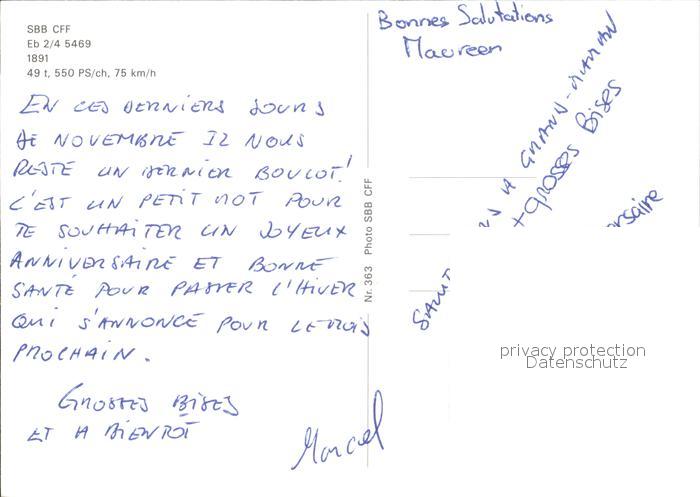 SBB CFF
Eb 2/4 5469
1891
49 t, 550 PS/ch, 75 km/h
EN CES DERNIERS JOURS
DE NOVEMBRE IL NOUS
RESTE UN DERNIER BOULOT!
C'EST UN PETIT MOT POUR
TE SOUHAITER UN JOYEUX
ANNIVERSAIRE ET BONNE
SANTÉ POUR PASSER L'HIVER
QUI S'ANNONCE POUR LE MOIS
PROCHAIN.
GROSSES BISES
ET A BIENTÔT
Marcel
Nr. 363 Photo SBB CFF
Bonnes Salutations
Maureen
A GRAND-MAMAN
+ GROSSES Bises
rsaire
privacy protection
Datenschutz